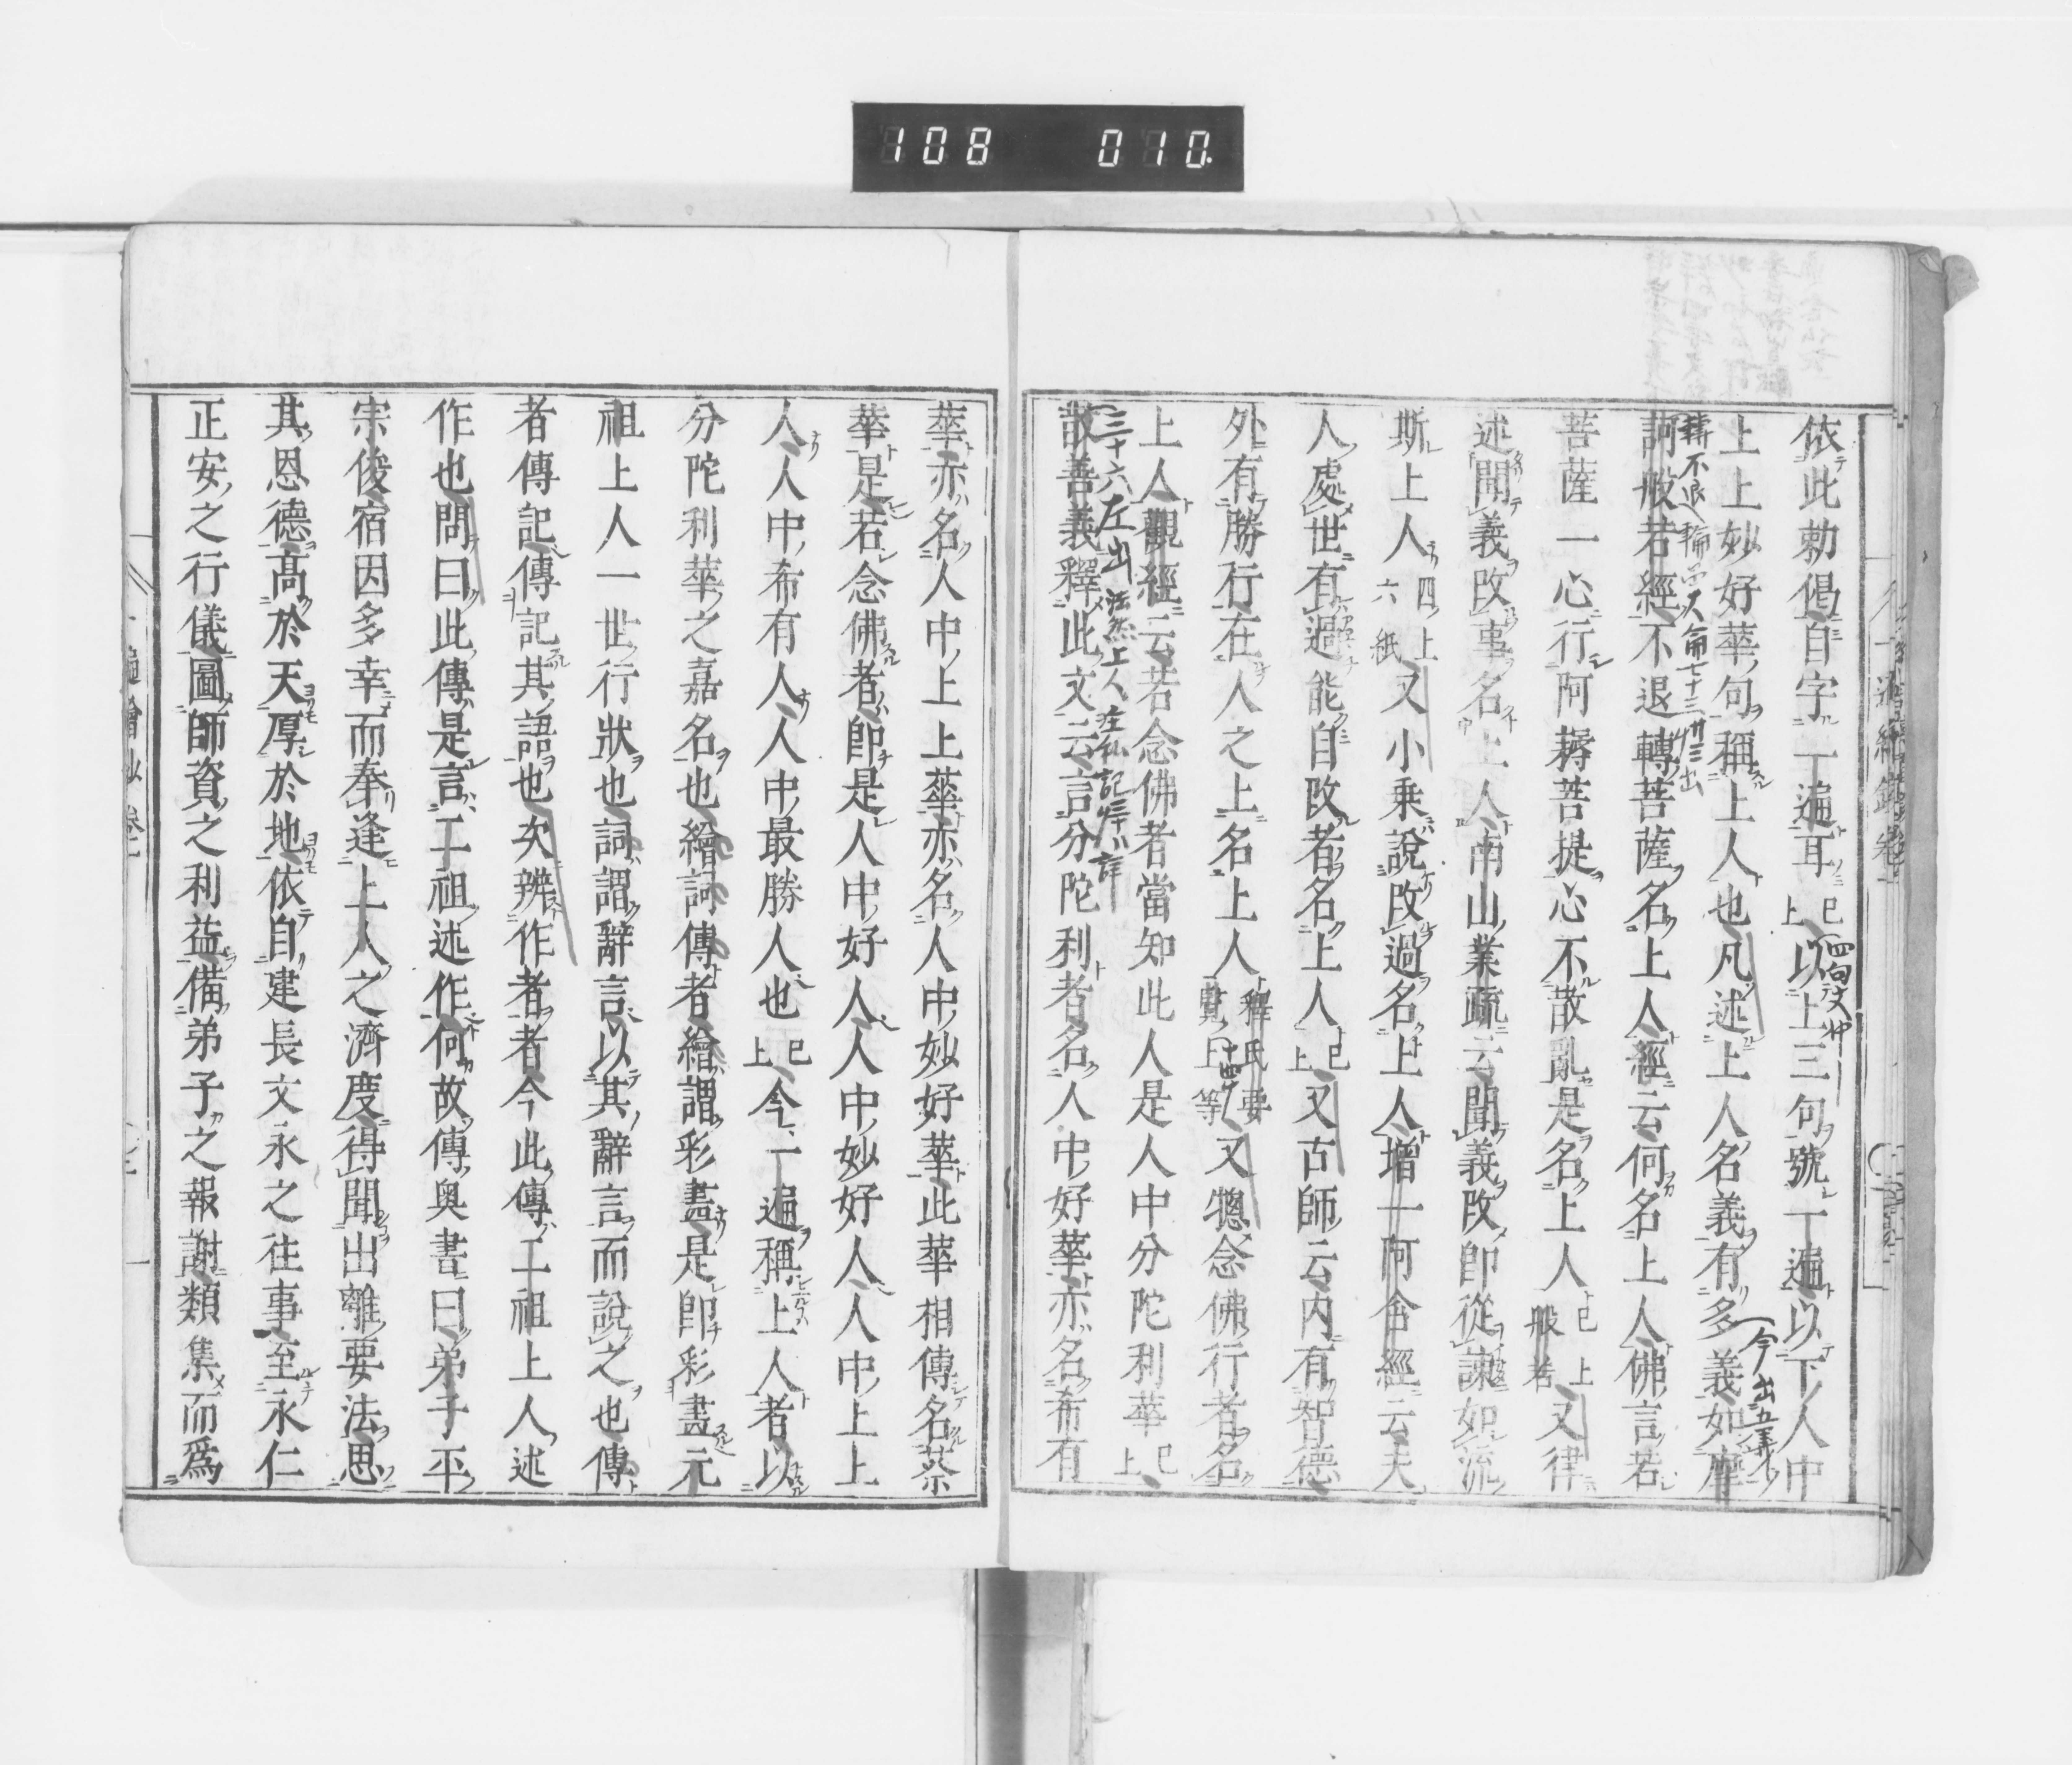 108 010.
依此勅偈自字一遍耳已上以上三句號一遍以下人中
上上妙好華句稱上人也凡述上人名義有多義如摩
訶般若經不退轉菩薩名上人經云何名上人佛言若
菩薩一心行阿耨菩提心不散亂是名上人已上般若又律
述聞義改事名上人南山業疏云聞義改即從諫如流
斯上人四上六紙又小乘說改過名上人增一阿含經云夫
人處世有過能自改者名上人已上又古師云內有智德
外有勝行在人之上名上人釋氏要覽上等又總念佛行者名
上人觀經云若念佛者當知此人是人中分陀利華已上
散善義釋此文云言分陀利者名人中好華亦名希有
華亦名人中上上華亦名人中妙好華此華相傳名蔡
華是若念佛者即是人中好人人中妙好人人中上上
人人中希有人人中最勝人也已上今一遍稱上人者以
分陀利華之嘉名也繪詞傳者繪謂彩畫是即彩畫元
祖上人一世行狀也詞謂辭言以其辭言而說之也傳
者傳記傳記其語也次辨作者者今此傳二祖上人述
作也問曰此傳是言二祖述作何故傳奧書曰弟子平
宗俊宿因多幸而奉逢上人之濟度得聞出離要法思
其恩德高於天厚於地依自建長文永之往事至永仁
正安之行儀圖師資之利益備弟子之報謝類集而爲